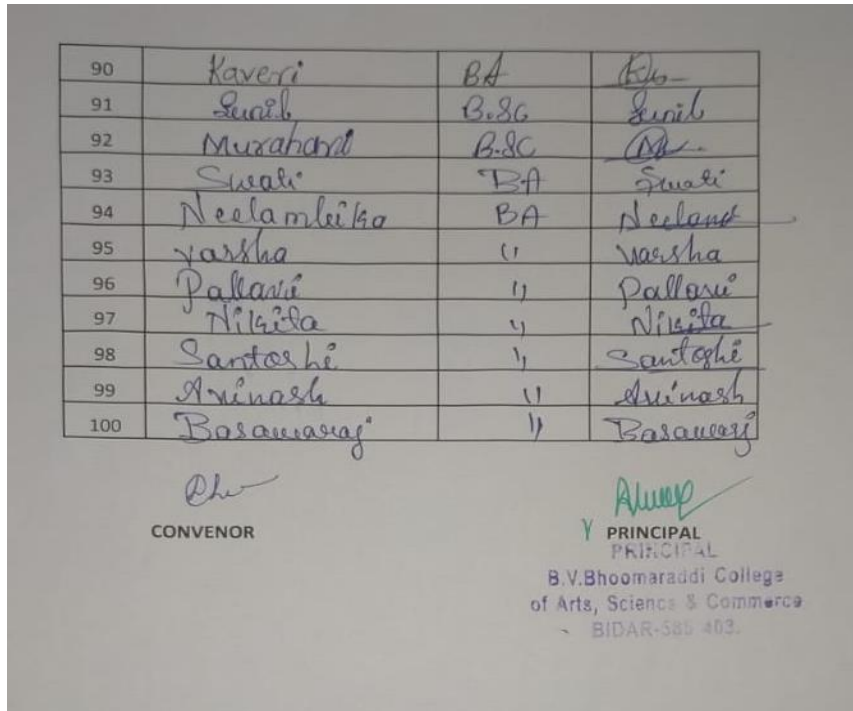 90 Kaveri BA
91 Sunil B.SC Sunil
92 B.SC
93 Swati BA Swati
94 Neelambika BA
95 Varsha " Varsha
96 Pallavi " Pallavi
97 Nikita " Nikita
98 Santoshi " Santoshi
99 Avinash " Avinash
100 Basawaraj " Basawaraj
CONVENOR
PRINCIPAL
PRINCIPAL
B.V.Bhoomaraddi College
of Arts, Science & Commerce
BIDAR-585 403.